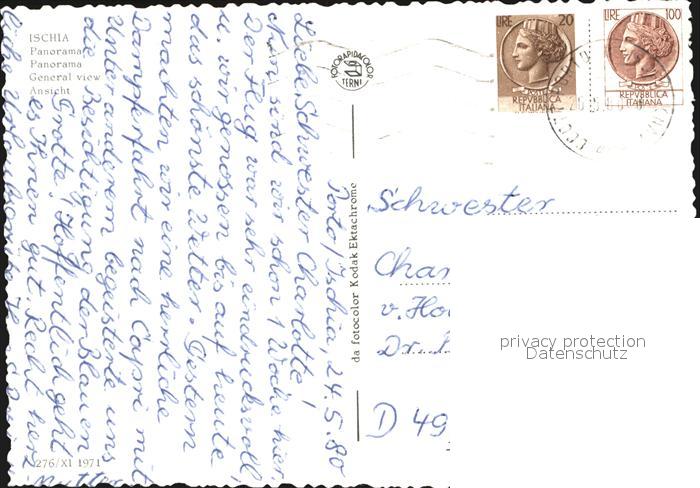 ISCHIA
Panorama
Panorama
General view
Ansicht
276/XI 1971
FOTORAPIDACOLOR
TERNI
da fotocolor Kodak Ektachrome
LIRE 20
REPVBBLICA
ITALIANA
LIRE 100
REPVBBLICA
ITALIANA
Porto/Ischia, 24.5.80
Liebe Schwester Charlotte!
Nun sind wir schon 1 Woche hier.
Der Flug war sehr eindrucksvoll
u. wir genossen bis auf heute
das schönste Wetter. Gestern
machten wir eine herrliche
Dampferfahrt nach Capri mit
Unter anderem begeisterte uns
die Besichtigung der Blauen
Grotte. Hoffentlich geht
es Ihnen gut. Recht herz
liche Urlaubsgrüße
Mutter
Schwester
Char
v. Ho
Dr.
D 49
privacy protection
Datenschutz